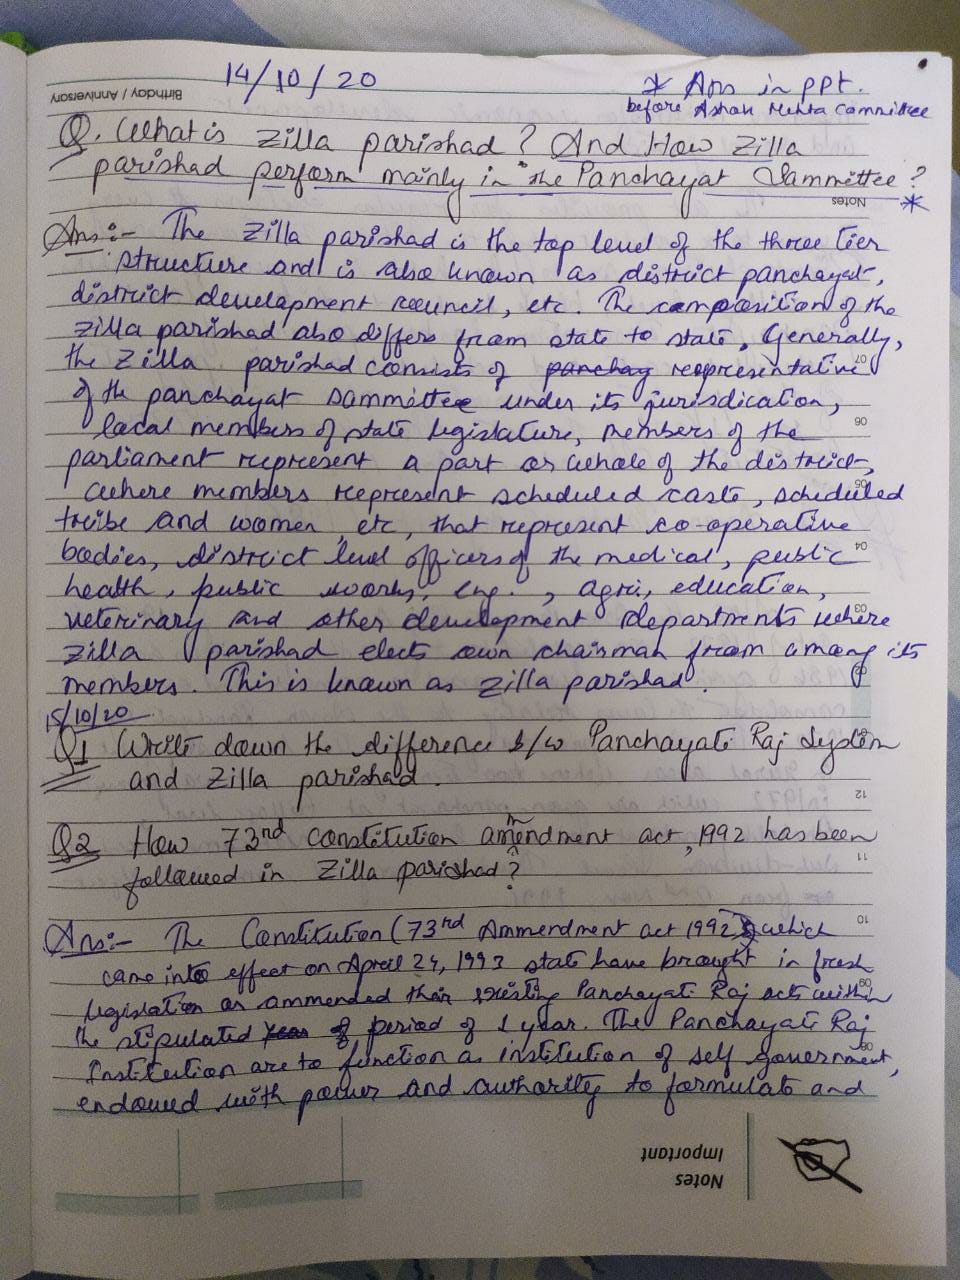 14/10/20
* Ans in ppt.
before Ashok Mehta Committee
Birthday / Anniversary
Q. What is Zilla parishad? And How Zilla
parishad perform mainly in the Panchayat Sammittee?
Notes
*
Ans:- The Zilla parishad is the top level of the three tier
structure and is also known as district panchayat,
district development council, etc. The composition of the
Zilla parishad also differs from state to state, Generally,
the Zilla parishad consists of panchay representative
07
of the panchayat sammittee under its jurisdication,
local members of state legislature, members of the
06
parliament represent a part or whole of the district,
where members represent scheduled caste, scheduled
05
tribe and women, etc, that represent co-operative
bodies, district level officers of the medical, public
04
health, public works, eng., agri, education,
veterinary and other development departments where
03
Zilla parishad elects own chairman from among its
members. This is known as Zilla parishad.
15/10/20
Q1 Write down the difference b/w Panchayati Raj System
and Zilla parishad.
12
Q2 How 73rd constitution amendment act, 1992 has been
11
followed in Zilla parishad?
Ans:- The Constitution (73rd Ammendment act 1992) which
10
came into effect on April 24, 1993 state have brought in fresh
legislation or ammended their existing Panchayati Raj acts within
09
the stipulated year of period of 1 year. The Panchayati Raj
Institution are to function as institution of self government,
08
endowed with power and authority to formulate and
Notes
Important